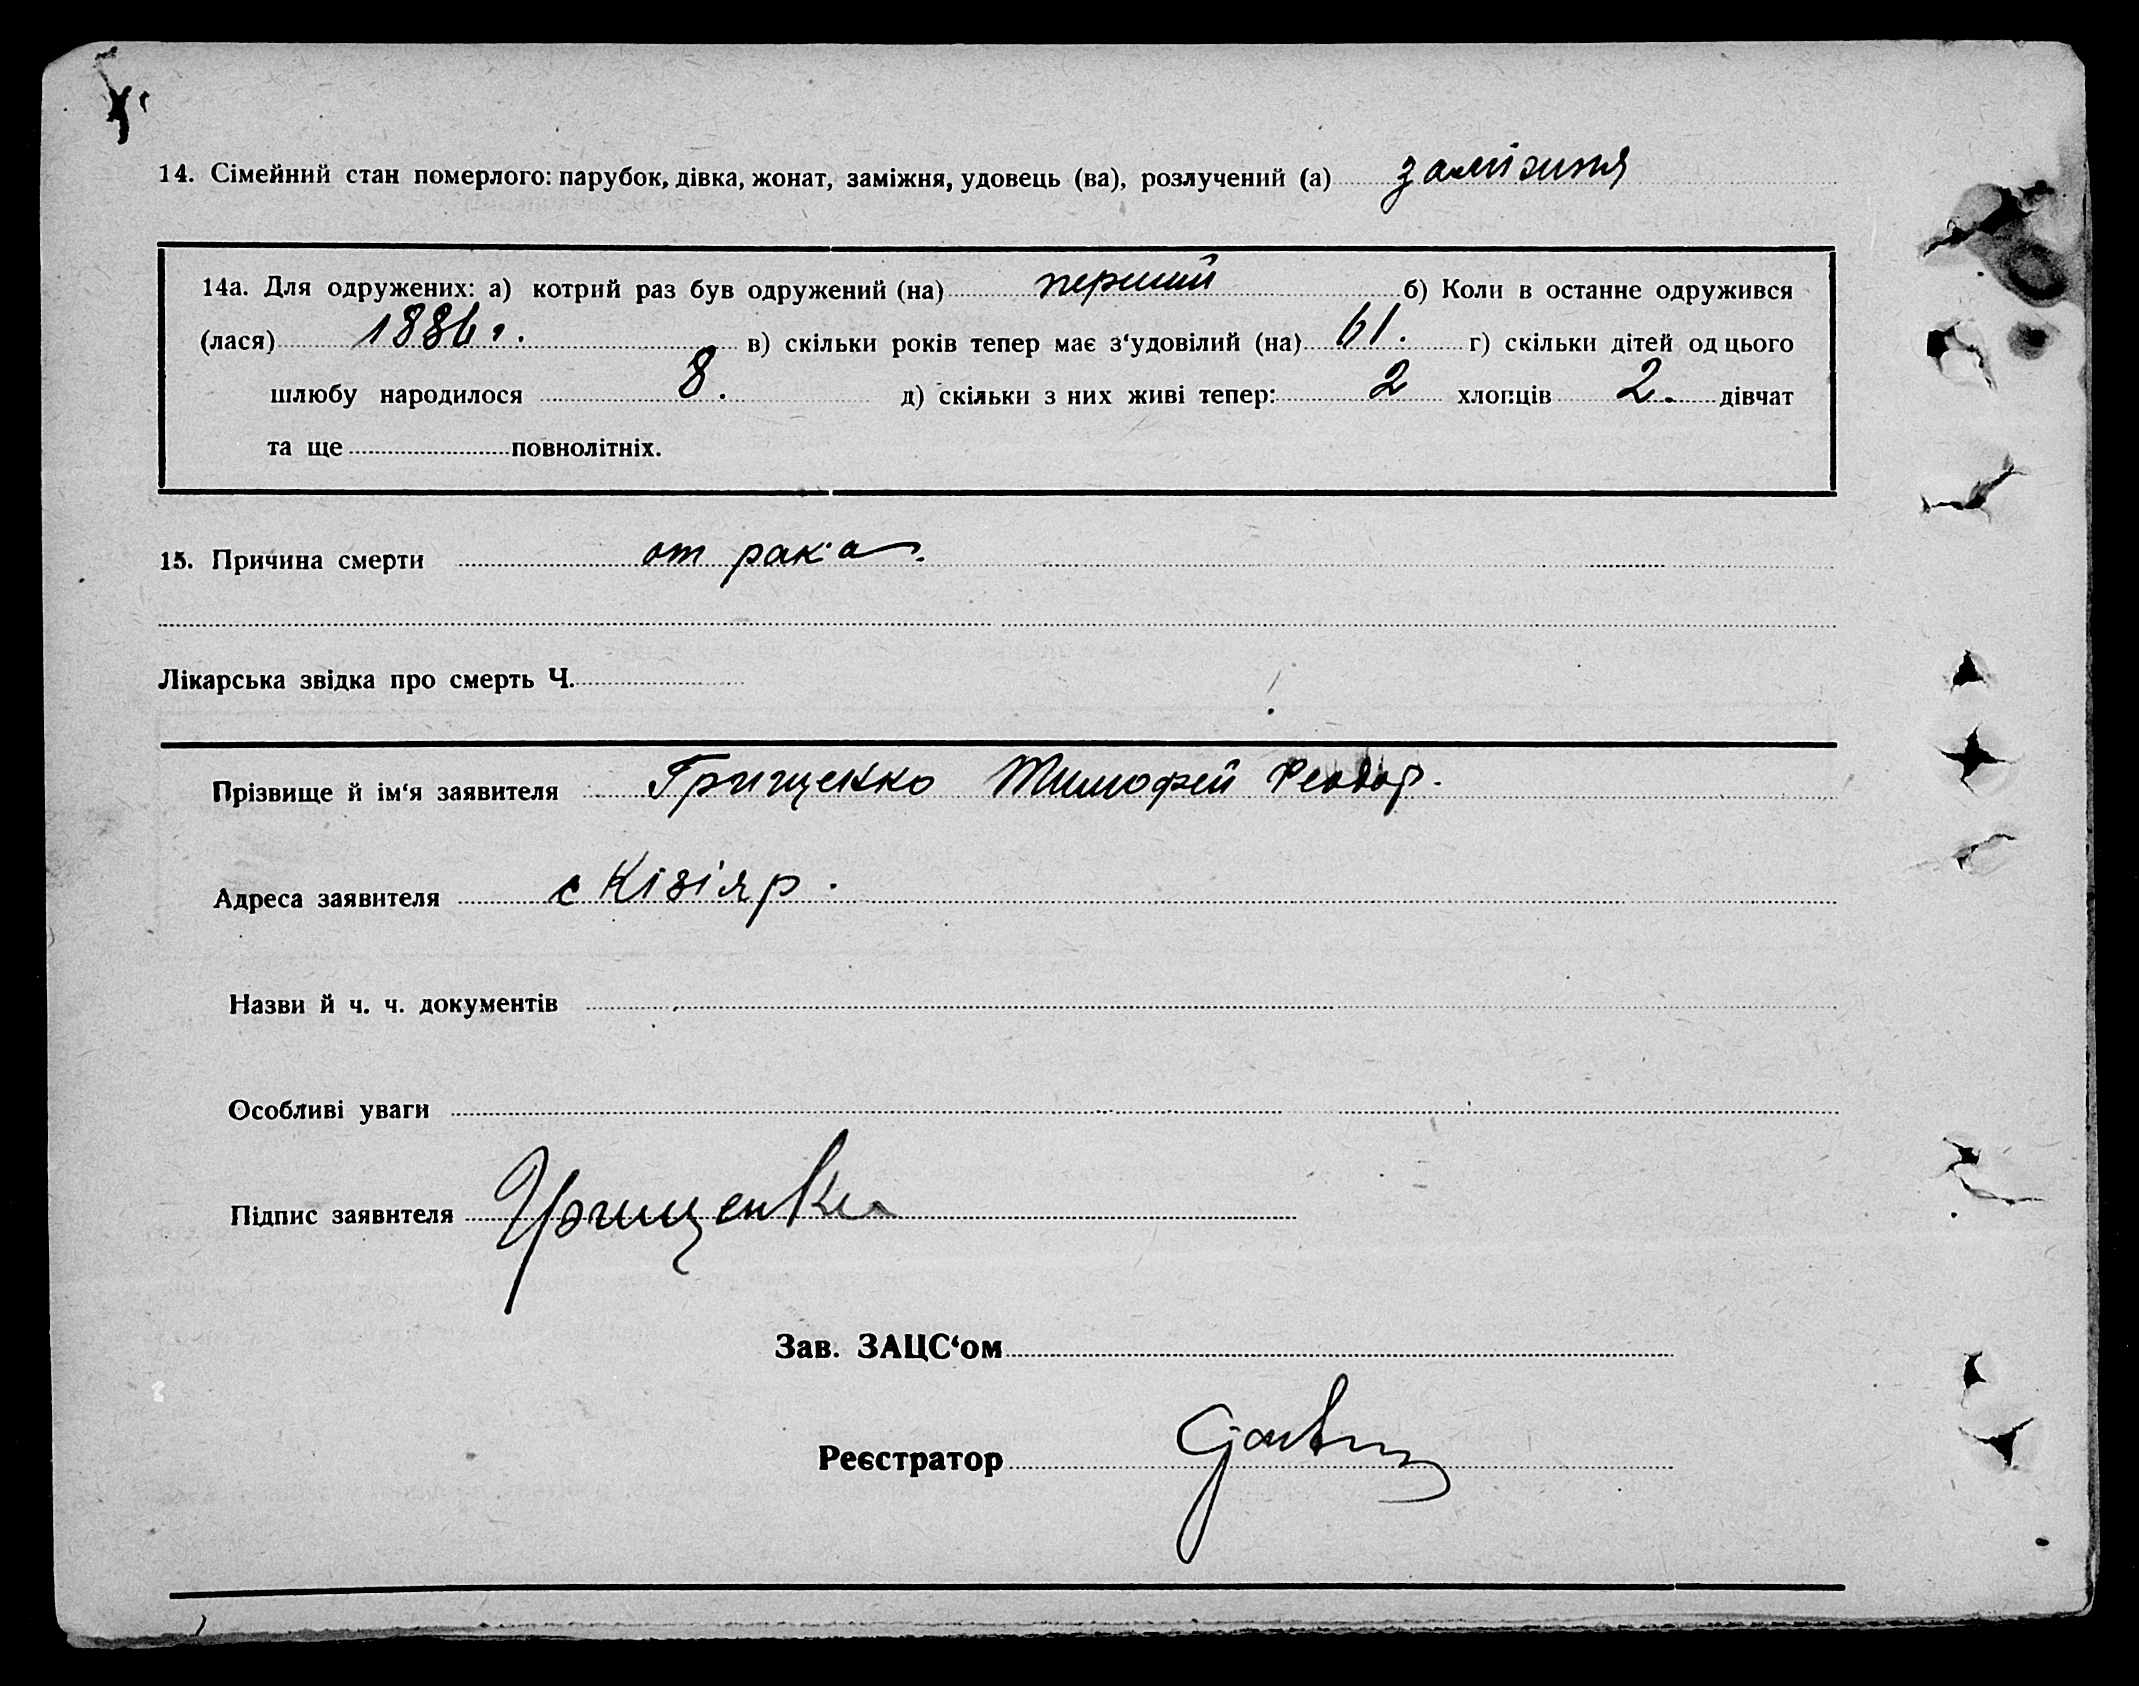 14. Сімейний стан померлого: парубок, дівка, жонат, заміжня, удовець (ва), розлучений (а) заміжня
14а. Для одружених: а) котрий раз був одружений (на) перший б) Коли в останне одружився
(лася) 1886 г. в) скільки років тепер має з‘удовілий (на) 61. г) скільки дітей од цього
шлюбу народилося 8. д) скільки з них живі тепер: 2 хлопців 2. дівчат
та ще повнолітніх.
15. Причина смерти от рака.
Лікарська звідка про смерть Ч.
Прізвище й ім‘я заявителя Грищенко Тимофей Феодор.
Адреса заявителя с Кізіяр.
Назви й ч. ч. документів
Особливі уваги
Підпис заявителя Грищенко
Зав. ЗАЦС‘ом
Реєстратор